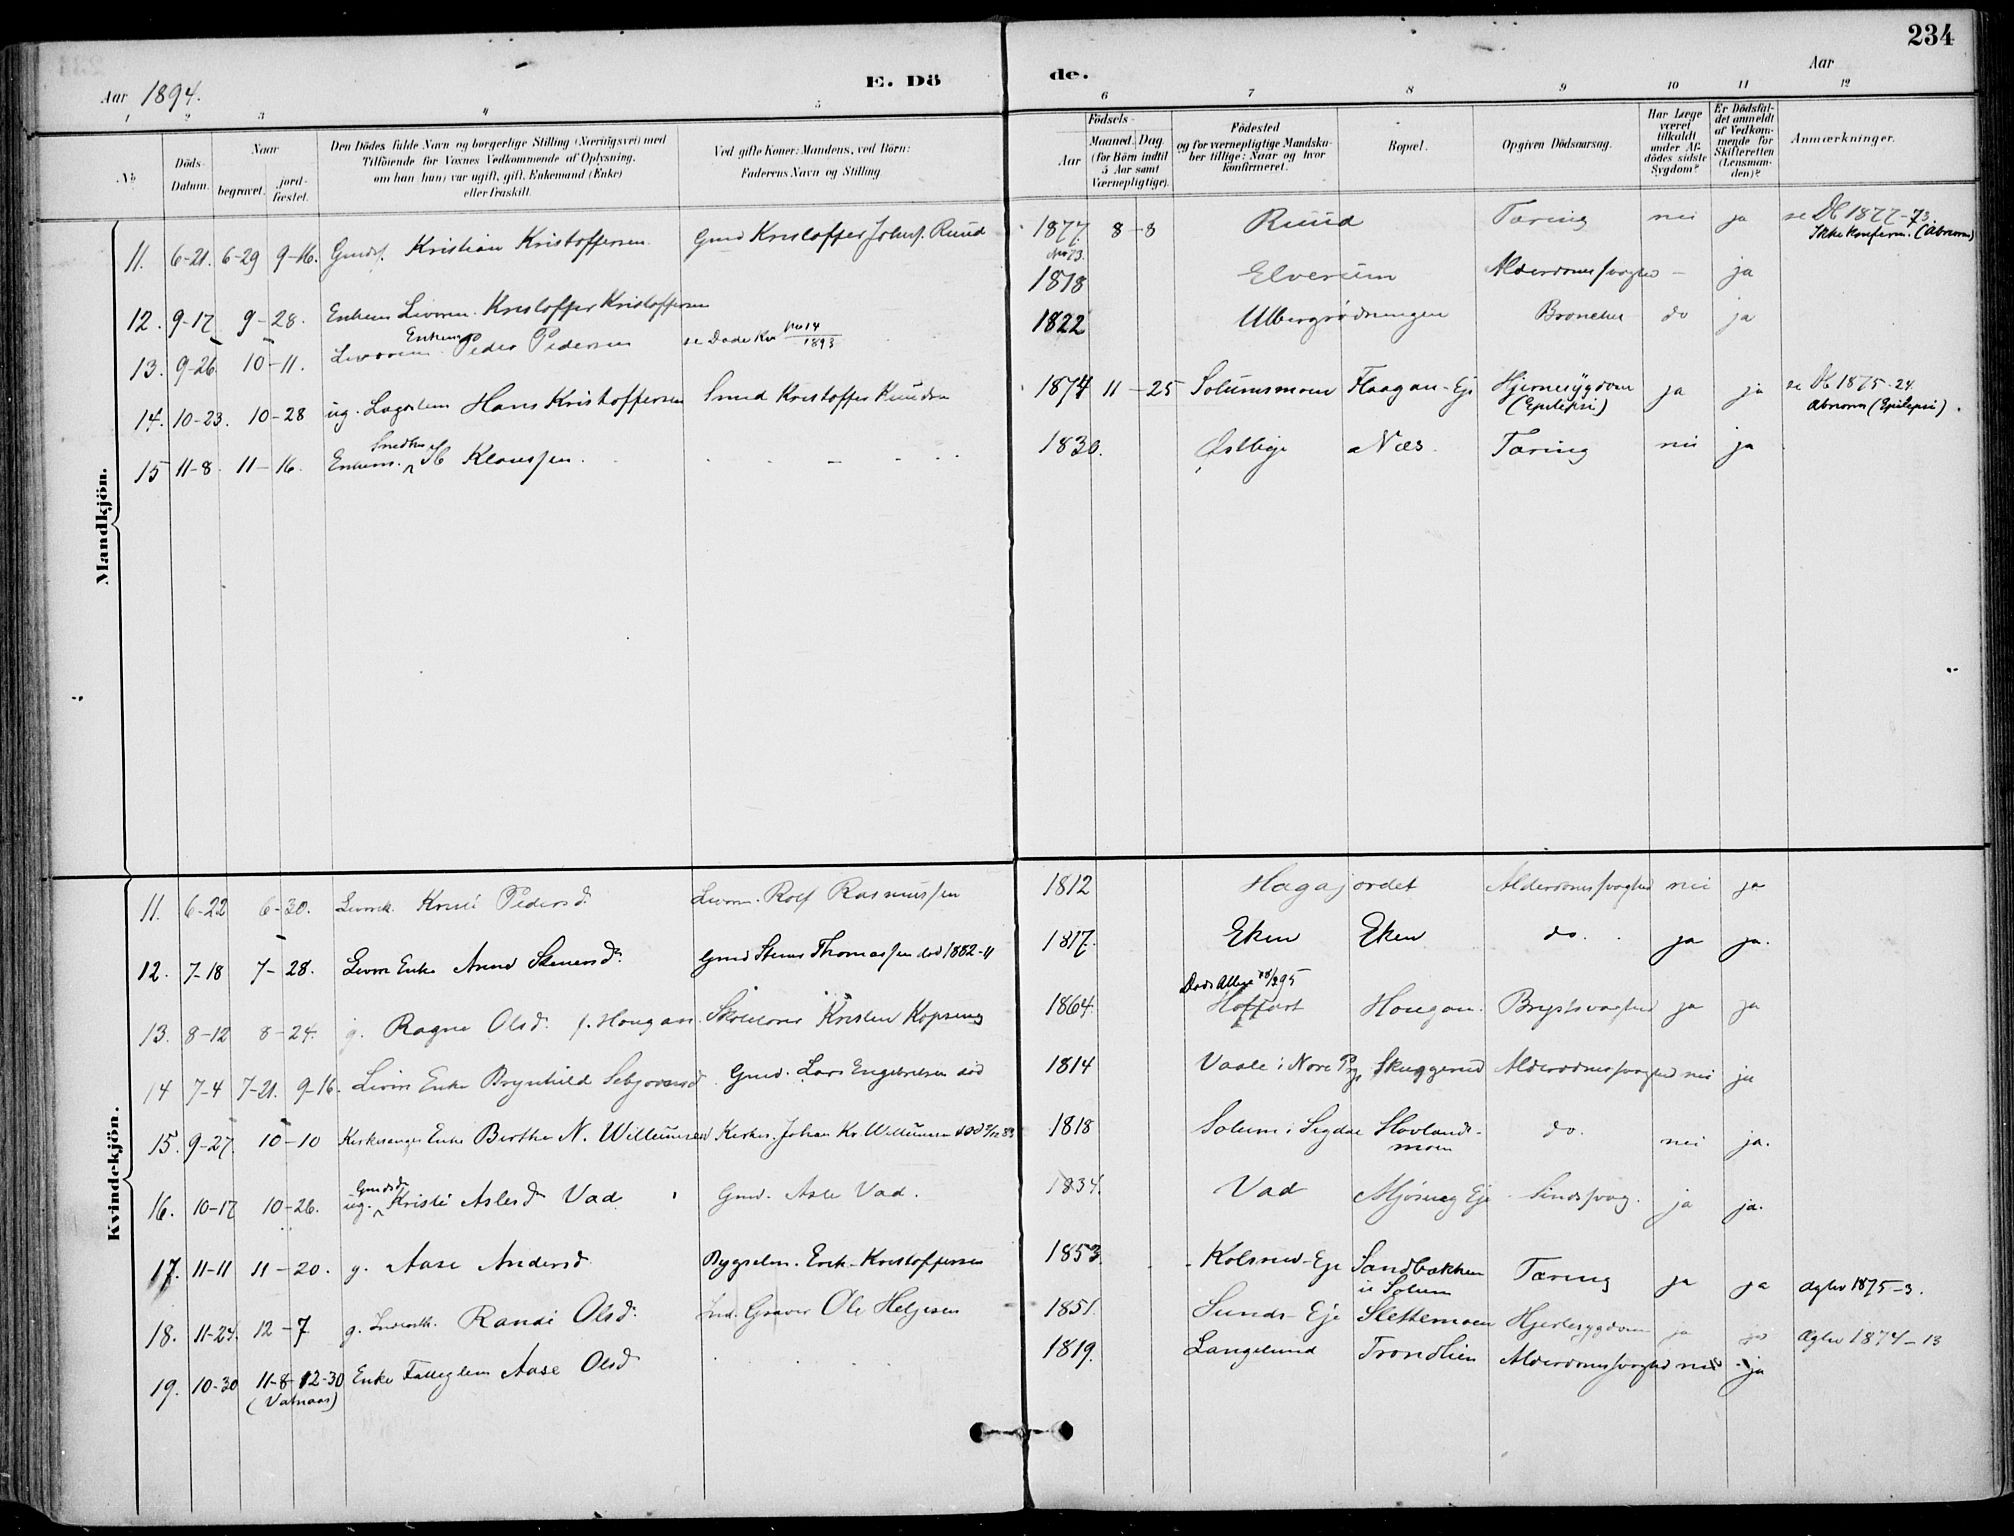 234
Aar 1894.
E. Dö de.
Aar
1 2 3 4 5 6 7 8 9 10 11 12
No
Döds-Datum.
Naar
begravet.
jord-fæstet.
Den Dödes fulde Navn og borgerlige Stilling (Næringsvei) med
Tilföiende for Voxnes Vedkommende af Oplysning,
om han (hun) var ugift, gift, Enkemand (Enke)
eller fraskilt.
Ved gifte Koner: Mandens, ved Börn:
Faderens Navn og Stilling.
Födsels-
Aar
Maaned. Dag.
(for Börn indtil
5 Aar samt
Værnepligtige).
Födested
og for værnepligtige Mandska-
ber tillige: Naar og hvor
konfirmeret.
Bopæl.
Opgiven Dödsaarsag.
Har Læge
været
tilkaldt
under Af-
dödes sidste
Sygdom?
Er Dödsfal-
det anmeldt
af Vedkom-
mende for
Skifteretten
(Lensman-
den)?
Anmærkninger.
Mandkjön.
11. 6-21. 6-29 9-16. Gmds. Kristian Kristoffersen. Gmd Kristoffer Johns. Ruud 1877. No 73. 8-8 Ruud Tæring nei ja se Db 1877-73. Ikke konfirm. (Abnorm)
12. 9-17 9-28. Enkem Levem. Kristoffer Kristoffersen 1818 Elverum Alderdomssvaghed - ja
13. 9-26 10-11. Enkem Peder Pedersen se Døde Kv No 14 1893 1822 Ulbergrødningen Bronchit do ja
14. 10-23. 10-28 ug. Lægdslem Hans Kristoffersen Smed Kristoffer Knudsen 1874 11-25 Solumsmoen Flaagan-Eje Hjernesygdom (Epilepsi) ja ja se Db 1875-24. abnorm (Epilepsi).
15 11-8. 11-16. Enkem. Snedker Ib Klaussen. 1830. Østbye Næs. Tæring nei ja
Kvindekjön.
11. 6-22 6-30. Levek. Kristi Pedersd. Levem. Rolf Rasmussen 1812 Hagajordet Alderdomssvaghed nei ja
12. 7-18 7-28. Levm Enke Anne Stenersd. Gmd Stener Thomassen død 1882-11 1817. Eken Eken do. ja ja.
13. 8-12 8-24. g. Ragne Olsd. f. Hougan Skolelærer Kristen Kopseng 1864. Hoffart Hougan. Brystsvaghed ja ja
14 7-4 7-21. 9-16. Levm Enke Brynhild Sebjørnsd. Gmd. Lars Engebretsen død 1814 Vaale i Nore Pgj. Skuggerud Alderdomssvaghed nei ja
15. 9-27. 10-10 Kirkesanger Enke Berthe N. Willumsen Kirkes. Johan Kr. Willumsen død 1818 Solum i Sigdal Hovlands-moen do. nei ja.
16. 10-17 10-26. ug. Gmdsd. Kristi Aslesd Vad Gmd. Asle Vad. 1834. Vad Mjøsneg Eje Sindssvag. ja ja.
17. 11-11 11-20. g. Aase Andersd. Bygselm. Erik Kristoffersen 1853. Kolsrud-Eje Sandbakken u Solum Tæring ja ja Ægtev 1875-3.
18. 11-24. 12-7 g. Inderstk. Randi Olsd. Ind. Graver Ole Helgesen 1851. Sunds-Eje Slettemoen Hjertesygdom ja ja Ægtev 1874-13
19. 10-30 11-8 12-30 (Vatnaas) Enke Fattiglem Aase Olsd. 1819. Langelund Trondlien Alderdomssvaghed nei ja